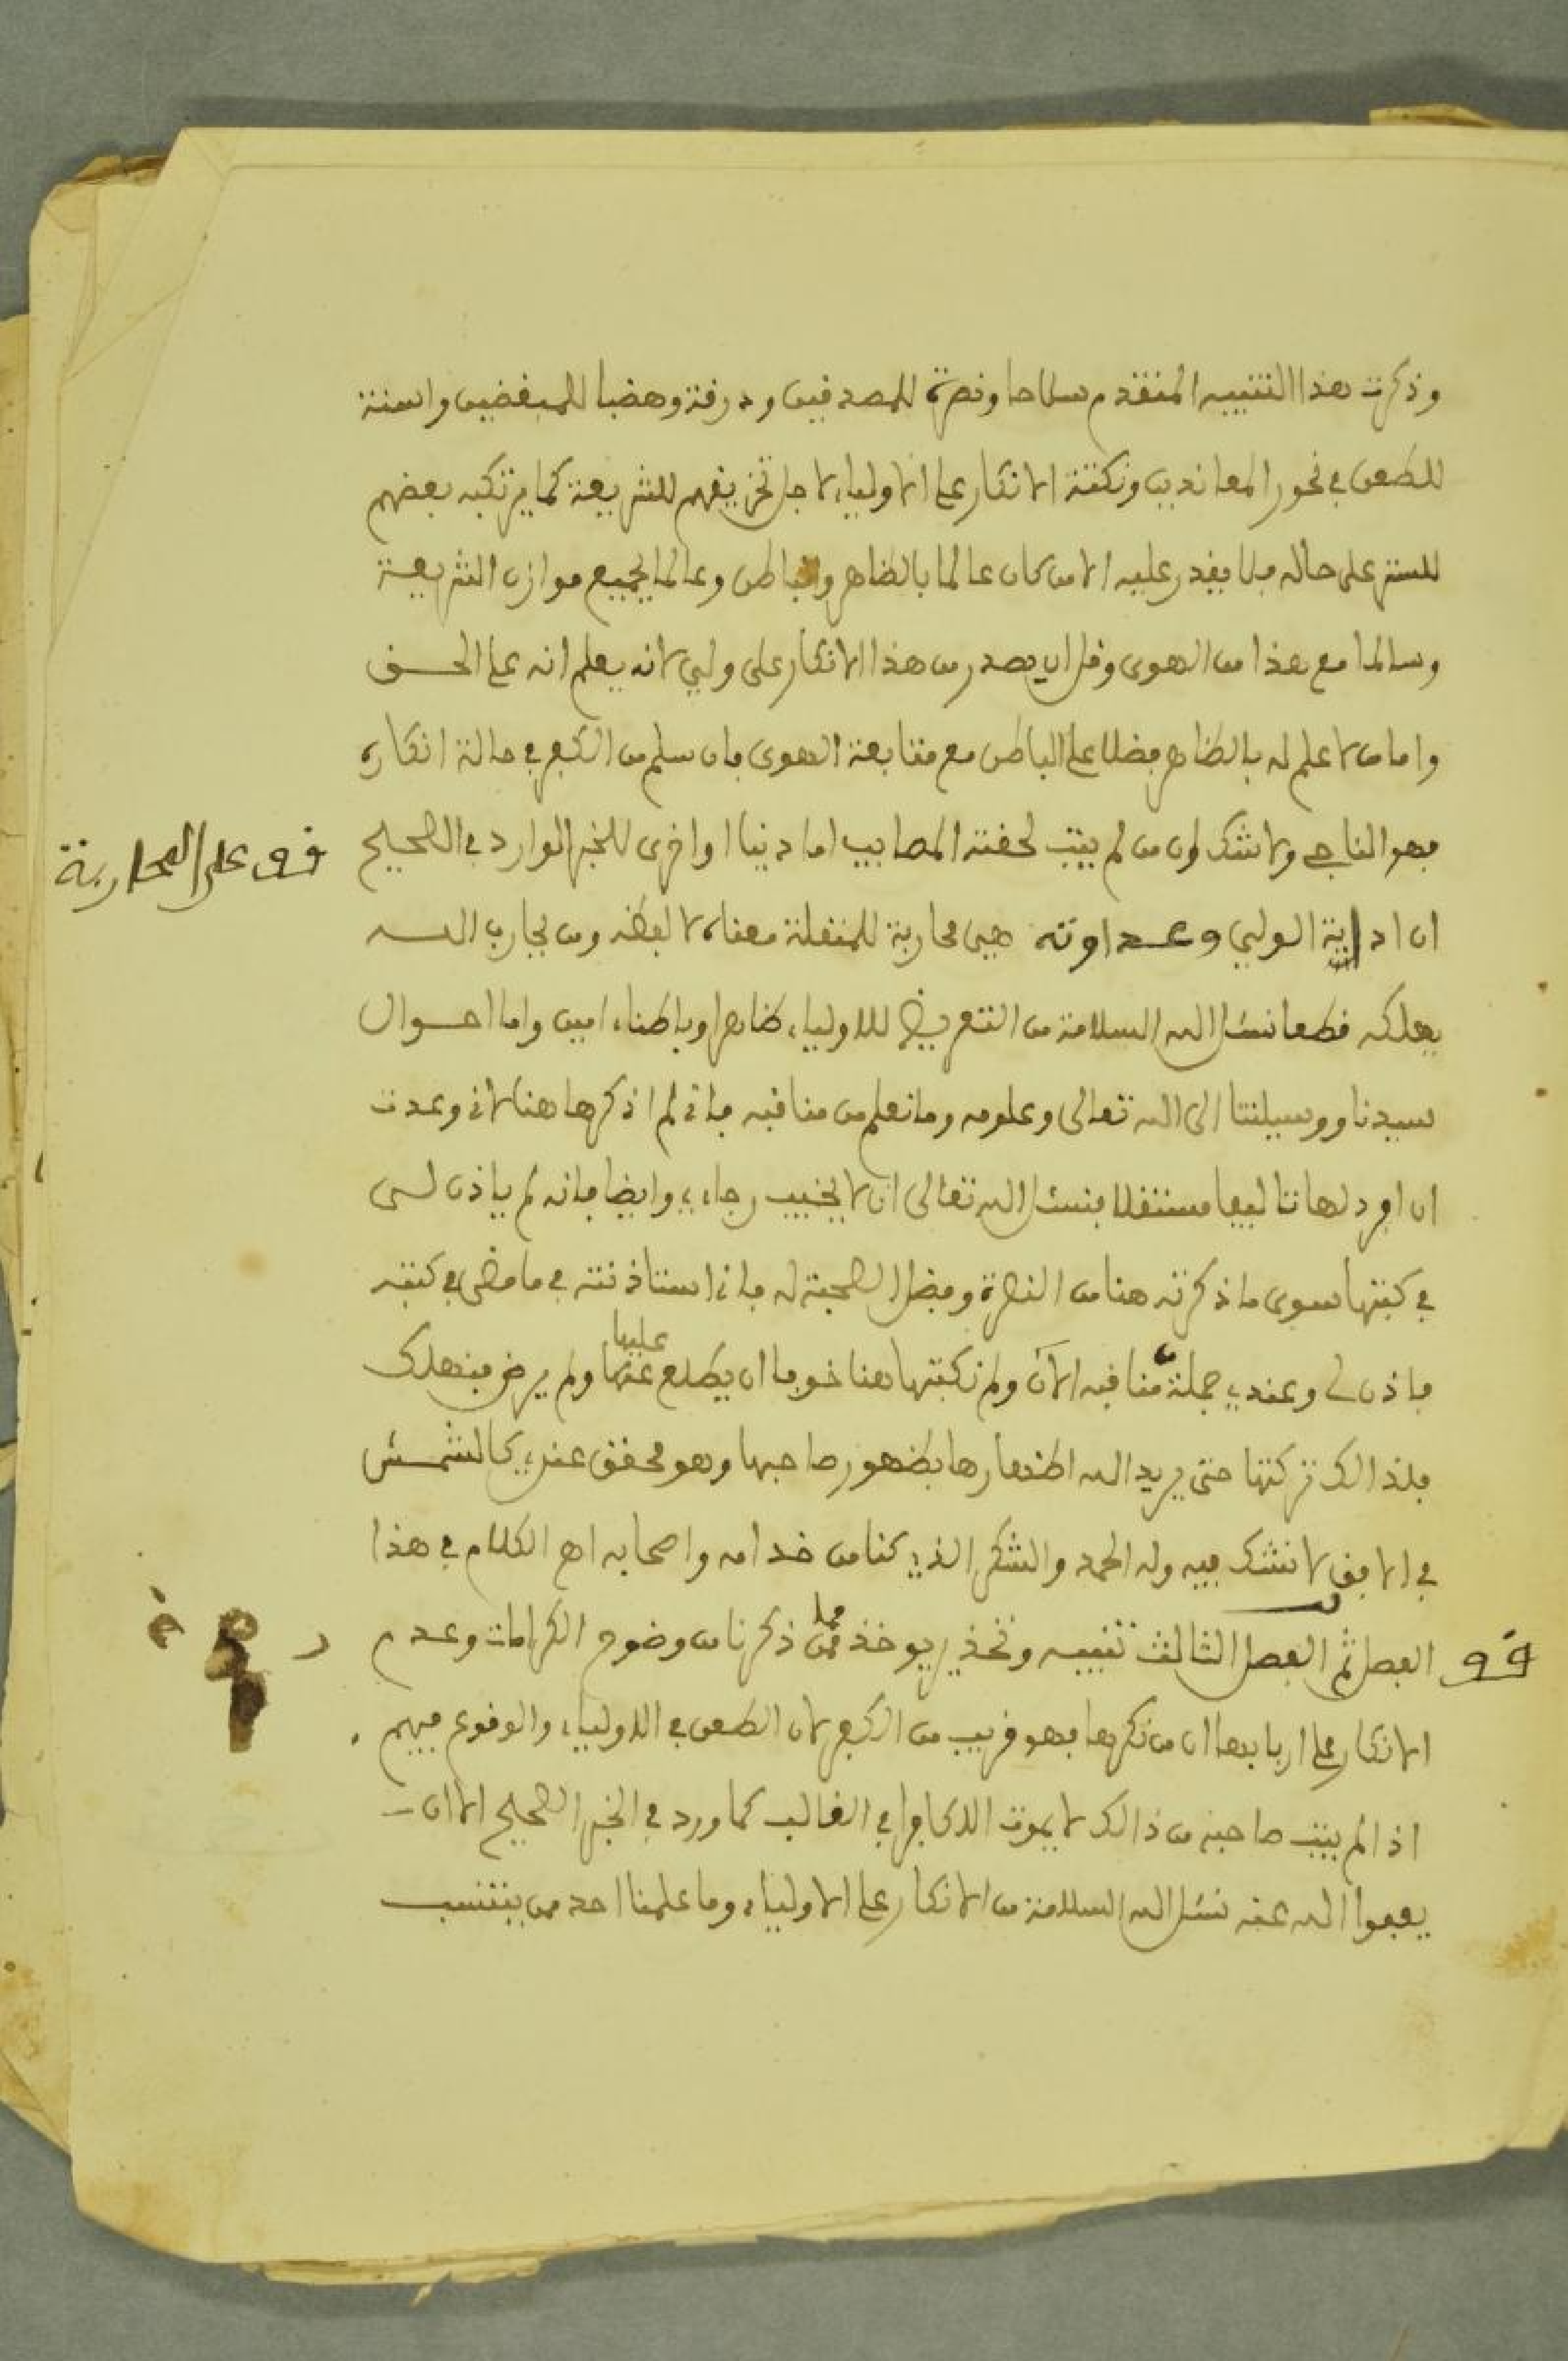 وذكرت هذا التنبيه المتقدم سلاحا ونصرة للمصدقين ودرقة وهضبا للمبغضين واسنة
للطعن في نحور المعاندين ونكتة الانكار على الاولياء لاجل تمزيقهم للشريعة كما يرتكبه بعضهم
للستر على حاله فلا يقدر عليه الا من كان عالما بالظاهر والباطن وعالما بجميع موازن الشريعة
وسالما مع هذا من الهوى وقل ان يصدر من هذا الانكار على ولي لانه يعلم انه على الحق
واما من لا علم له بالظاهر فضلا على الباطن مع متابعة الهوى فان سلم من الكفر في حالة انكاره
فهو الناجي ولا شك وان من لم يتب لحقته المصايب اما دنيا او اخرى للخبر الوارد في الصحيح
ق وعلى المحاربة
ان اداية الولي وعداوته هي محاربة للمتقلة معناه لا لفظه ومن يحارب الله
يهلكه قطعا نسئل الله السلامة من التعريض للاولياء ظاهرا وباطنا امين واما احوال
سيدنا ووسيلتنا الى الله تعالى وعلومه وما نعلم من مناقبه فاني لم اذكرها هنا لاني وعدت
ان افرد لها تاليفا مستقلا فنسئل الله تعالى ان لا يخيب رجاءي وايضا فانه لم ياذن لي
في كتبها سوى ما ذكرته هنا من النصرة وفضل الصحبة له فاني استاذنته في ما مضى في كتبه
فاذن لي وعندي جملة من مناقبه الان ولم نكتبها هنا خوفا ان يطلع عنها عليها ولم يرض فنهلك
فلذالك تركتها حتى يريد الله اظهارها بظهور صاحبها وهو محقق عندي كالشمس
في الافق لا نشك فيه وله الحمد والشكر الذي كنا من خدامه واصحابه اهـ الكلام في هذا
الفصل ثم الفصل الثالث تنبيه وتحذير يوخذ مما ذكرنا من وضوح الكرامات وعدم
الانكار على اربابها ان من نكرها فهو قريب من الكفر لان الطعن في الاولياء والوقوع فيهم
اذا لم يتب صاحبه من ذالك لا يموت الا كافرا في الغالب كما ورد في الخبر الصحيح الا ان
يعفوا الله عنه نسئل الله السلامة من الانكار على الاولياء وما علمنا احد ممن ينتسب